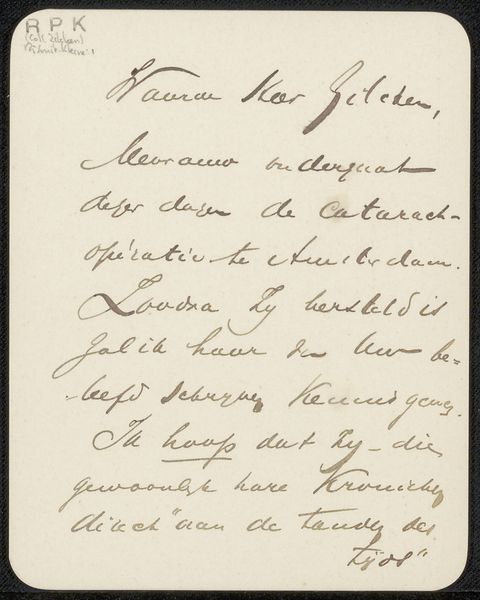 RPK
(coll Zilcken)
Waarde Heer Zilcken,
Mevrouw ondergaat
dezer dagen de Catarach-
operatie te Amsterdam.
Zoodra zy hersteld is
zal ik haar Uw be-
leefd schryven Kennis geven.
Ik hoop dat zy - die
gewoonlyk hare Kronieken
direct "aan de tanden des
tyds"